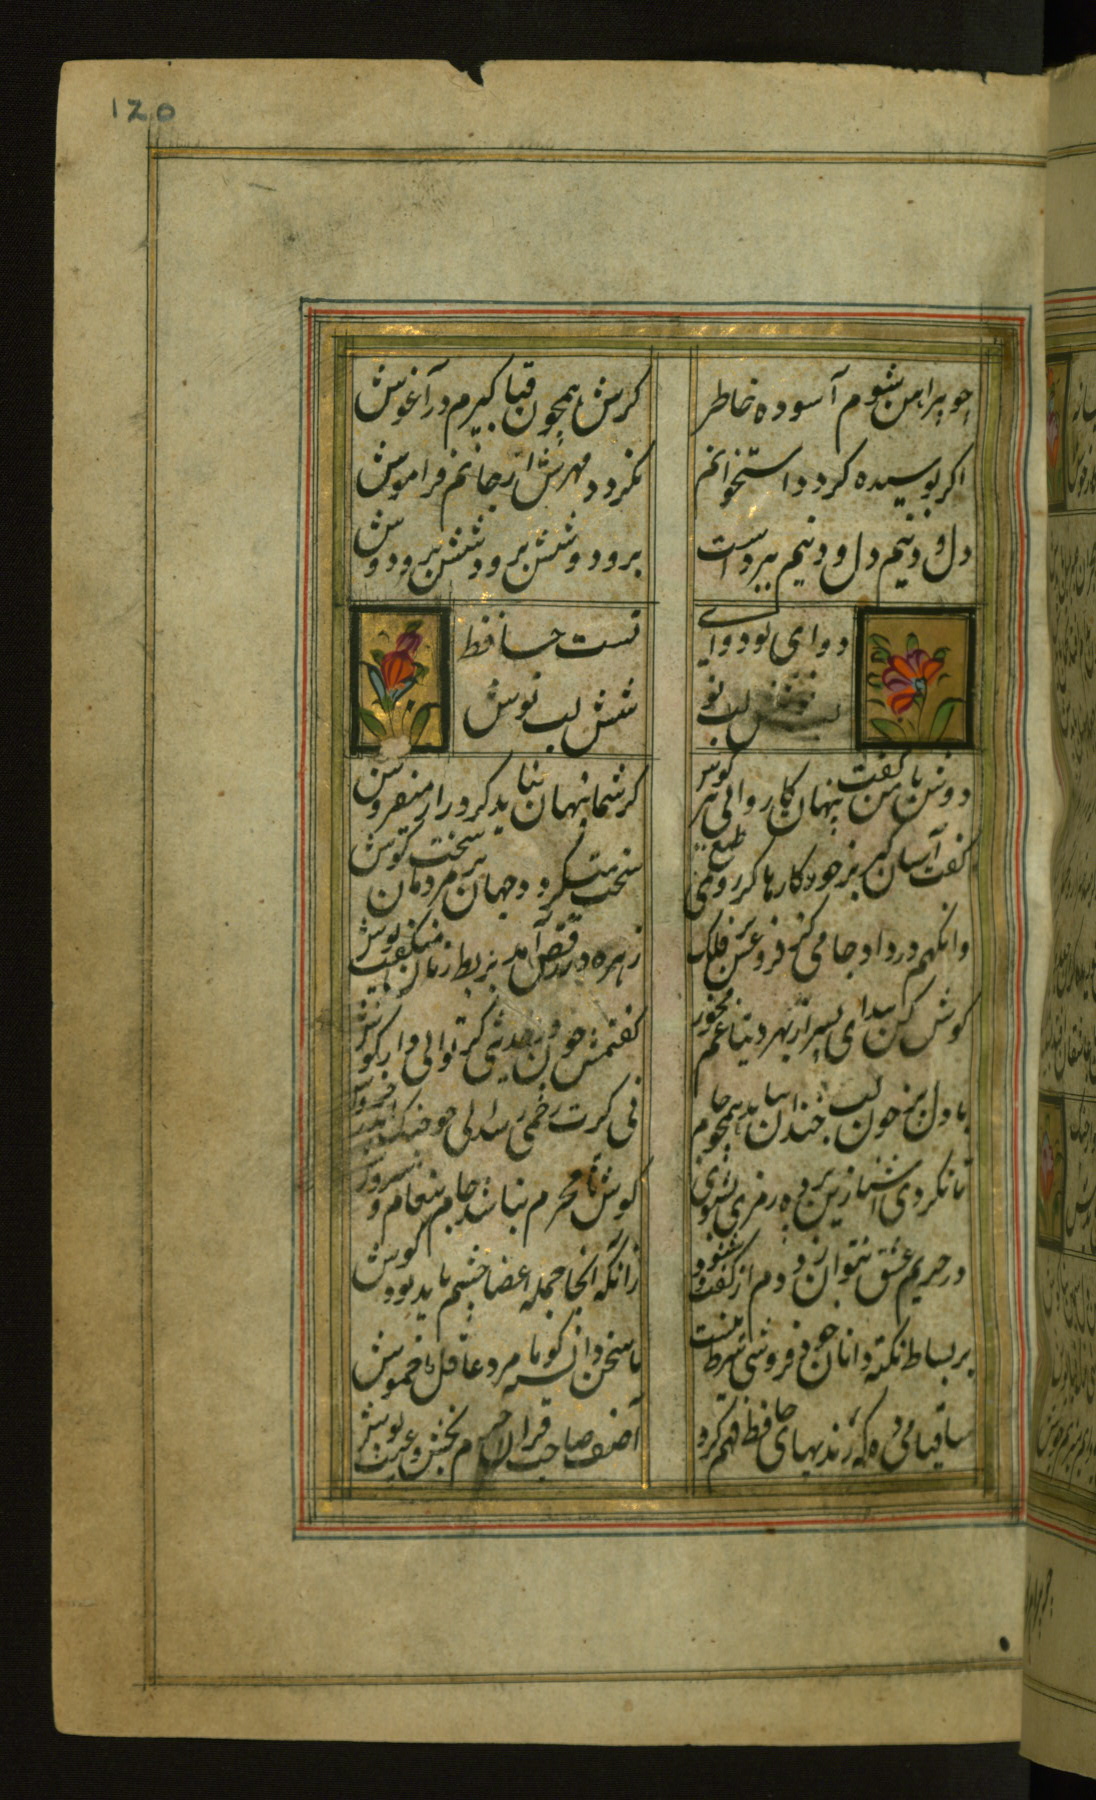 120
چو پیراهن شوم آسوده خاطر
کرش همچون قبا کیرم در آغوش
اکر بوسیده کردد استخوانم
نکردد مهرش از جانم فراموش
دل و دینم دل و دینم ببردست
برو دوشش برو دوشش برو دوش
دوای تو دوای
تست حافظ
لب نو
شش لب نوش
دوش با من کفت پنهان کاردانی تیز هوش
کز شما پنهان نباید کرد راز میفروش
کفت آسان کیر بر خود کارها کز روی طبع
سخت میکردد جهان بر مردمان سخت کوش
وانکهم در داد جامی کز فروغش بر فلک
زهره در رقص آمد و بربط زنان میکفت نوش
کوش کن پند ای پسر از بهر دنیا غم مخور
کفتمت چون در حدیثی کر توانی دار کوش
با دل پر خون لب خندان بیاور همچو جام
نی کرت زخمی رسد
تا نکردی آشنا زین پرده رمزی نشنوی
کوش نامحرم نباشد جای پیغام سروش
در حریم عشق نتوان زد دم از کفت و شنود
زانکه آنجا جمله اعضا چشم باید بود و کوش
بر بساط نکته دانان خود فروشی شرط نیست
یا سخن دانسته کو ای مرد عاقل یا خموش
ساقیا می ده که رندیهای حافظ فهم کرد
آصف صاحب قران جرم بخش و عیب پوش